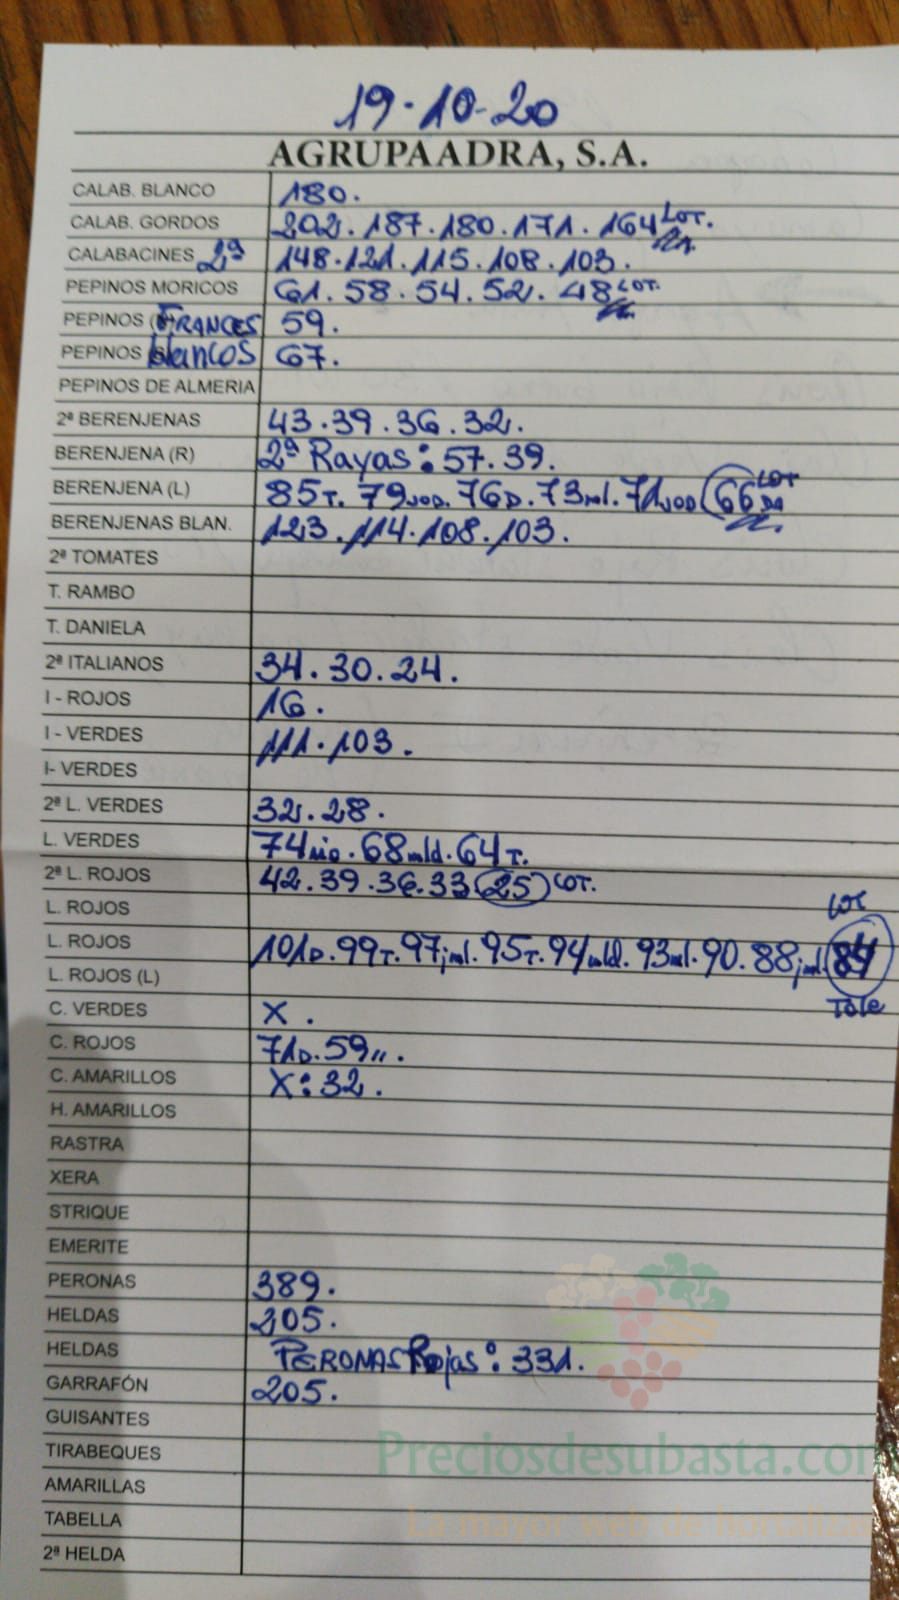 19-10-20
AGRUPAADRA, S.A.
CALAB. BLANCO 180.
CALAB. GORDOS 202.187.180.171.164 LOT.
CALABACINES 2ª 148.121.115.108.103.
PEPINOS MORICOS 61.58.54.52.48 LOT.
PEPINOS FRANCES 59.
PEPINOS blancos 67.
PEPINOS DE ALMERIA
2ª BERENJENAS 43.39.36.32.
BERENJENA (R) 2ª Rayas: 57.39.
BERENJENA (L) 85T. 79 76D. 73ml. 71 66 LOT
BERENJENAS BLAN. 123.114.108.103.
2ª TOMATES
T. RAMBO
T. DANIELA
2ª ITALIANOS 34.30.24.
I - ROJOS 16.
I - VERDES 111.103.
I- VERDES
2ª L. VERDES 32.28.
L. VERDES 74 68mld. 64T.
2ª L. ROJOS 42.39.36.33 25 LOT.
L. ROJOS LOT
L. ROJOS 101D. 99T. 97jml. 95T. 94mld. 93ml. 90. 88jml. 84
L. ROJOS (L) Tole
C. VERDES X.
C. ROJOS 71D. 59".
C. AMARILLOS X: 32.
H. AMARILLOS
RASTRA
XERA
STRIQUE
EMERITE
PERONAS 389.
HELDAS 205.
HELDAS PERONAS Rojas: 331.
GARRAFÓN 205.
GUISANTES
Preciosdesubasta.com
TIRABEQUES
AMARILLAS
La mayor web de hortalizas
TABELLA
2ª HELDA